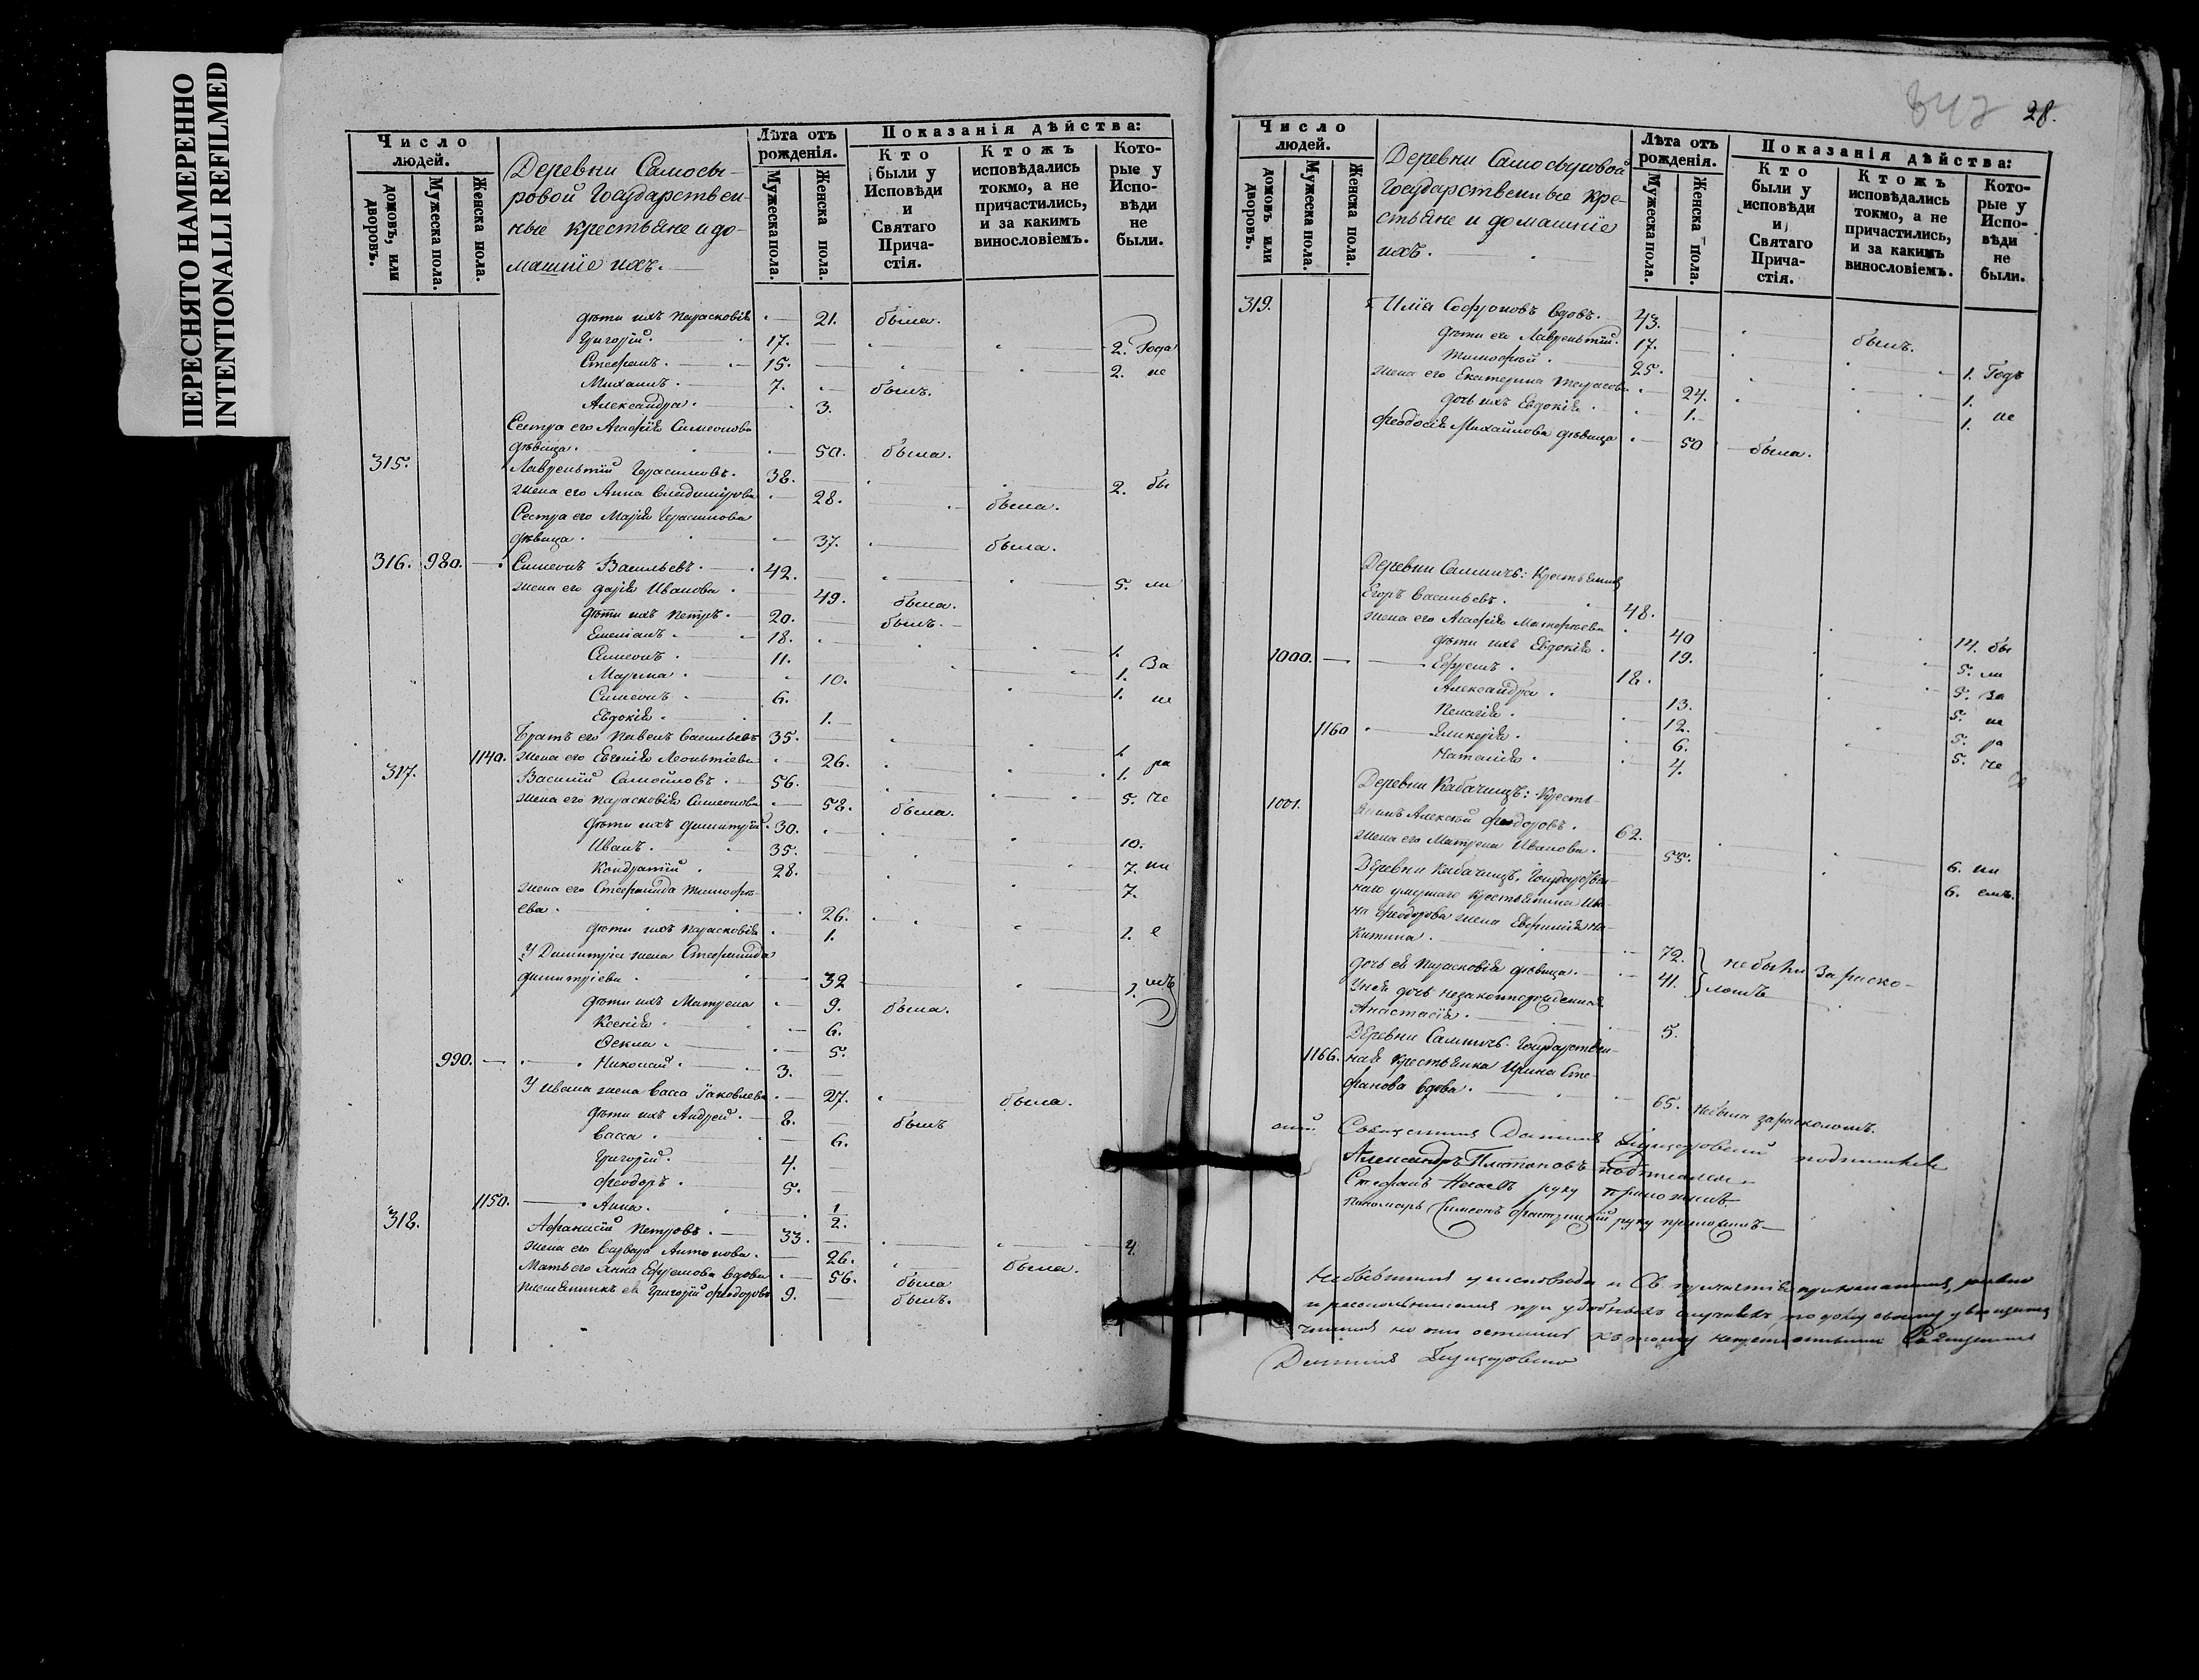 ПЕРЕСНЯТО НАМЕРЕННО
INTENTIONALLI REFILMED
Число людей.
домовъ, или дворовъ.
Мужеска пола.
Женска пола.
Деревни Самосы-
ровой Государствен-
ные крестьяне и до-
машніе ихъ.
Лѣта отъ рожденія.
Мужеска пола.
Женска пола.
Показанія дѣйства:
Кто были у Исповѣди и Святаго Прича-стія.
Ктожъ исповѣдались токмо, а не причастились, и за какимъ винословіемъ.
Кото-рые у Испо-вѣди не были.
дѣти ихъ Парасковія 21. была.
Григорій. 17. 2. Года
Стефанъ. 15. 2. не
Михаилъ. 7. былъ.
Александра. 3.
Сестра его Агафія Симеонова
дѣвица. 50. была.
315. Лаврентій Герасимовъ. 38. 2. бы
жена его Анна Владимірова 28. была.
Сестра его Марія Герасимова
дѣвица. 37. была.
316. 980. Симеонъ Васильевъ. 42. 5. ли
жена его Дарія Иванова. 49. была.
дѣти ихъ Петръ. 20. былъ.
Емеліанъ. 18. 1.
Симеонъ. 11. 1. За
Марина. 10. 1.
Симеонъ. 6. не
Евдокія. 1.
Братъ его Павелъ Васильевъ 35. 1.
1140. жена его Евгенія Леонтіева 26. 1. ра
317. Василій Самойловъ. 56. 5. че
жена его Парасковія Симеонова 58. была.
дѣти ихъ Димитрій. 30. 10.
Иванъ. 35. 7. ни
Кондратій. 28. 7.
жена его Стефанида Тимофѣ-
ева. 26. 1. е
дѣти ихъ Парасковія 1.
У Димитрія жена Стефанида
Димитріева. 32 мъ
дѣти ихъ Матрена 9. была.
Ксенія. 6.
Ѳекла. 5.
990. Николай. 3.
У Ивана жена Васса Іаковлева. 27. была.
дѣти ихъ Андрей. 8. былъ
Васса. 6.
Григорій. 4.
Феодоръ. 5.
1150. Анна. 1/2.
318. Афанасій Петровъ. 33. 4.
жена его Варвара Антонова. 26. была.
Мать его Анна Ефремова вдова 56. была
племянникъ ея Григорій Феодоровъ 9. былъ.
28.
Число людей.
домовъ или дворовъ.
Мужеска пола.
Женска пола.
Деревни Самосыровой
Государственные кре-
стьяне и домашніе
ихъ.
Лѣта отъ рожденія.
Мужеска пола.
Женска пола.
Показанія дѣйства:
Кто были у исповѣди и Святаго Прича-стія.
Ктожъ исповѣдались токмо, а не причастились, и за какимъ винословіемъ.
Кото-рые у Испо-вѣди не были.
319. Илія Софроновъ вдовъ. 43.
дѣти его Лаврентій. 17. былъ.
Тимофей. 25. 1. Годъ
жена его Екатерина Тарасова 24. 1.
дочь ихъ Евдокія. 1. 1. не
Феодосія Михайлова дѣвица 50 была.
Деревни Салмичъ: Крестьянинъ
Егоръ Васильевъ. 48.
жена его Агафія Матфѣева 40 14. бы
дѣти ихъ Евдокія. 19. 5. ли
1000. Ефремъ. 18. 5. За
Александра. 13. 5. не
Пелагія. 12. 5. ра
1160 Гликерія. 6. 5. че
Наталія. 4.
Деревни Кабачищъ: Кресть-
1001. янинъ Алексѣй Феодоровъ. 62.
жена его Матрена Иванова. 55. 6. ни
Деревни Кабачищъ. Государствен-
наго умершаго крестьянина Ива- 6. емъ.
на Феодорова жена Евфимія Ни-
китина. 72. не были За раско-
дочь ея Парасковія дѣвица. 41. ломъ
У ней дочь незаконнорожденная
Анастасія. 5.
Деревни Салмичъ. Государствен-
1166. ная Крестьянка Ирина Сте-
фанова вдова. 65. не была за расколомъ.
Александръ Платоновъ подписался
Стефанъ руку приложилъ
Пономарь Симеонъ руку приложилъ